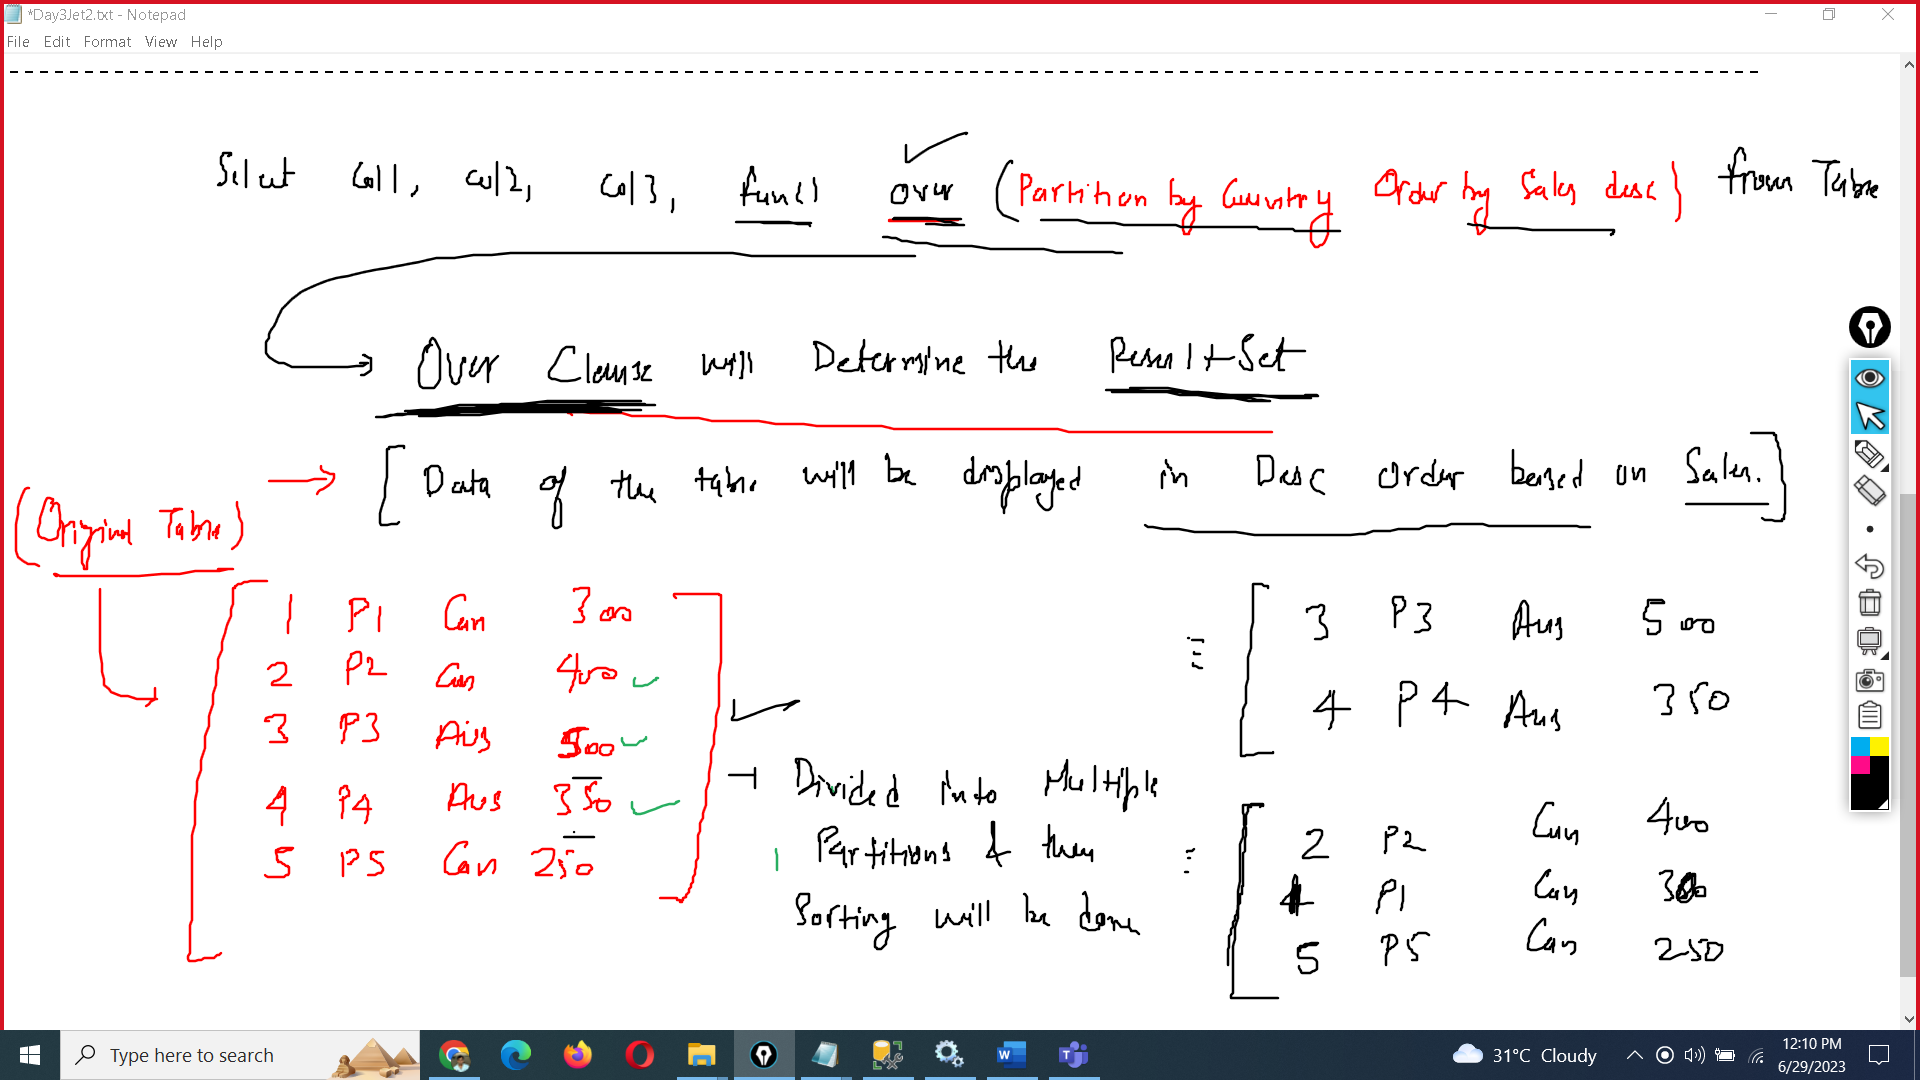 *Day3Jet2.txt - Notepad
File Edit Format View Help
Select Col1, col2, Col3, func1 over (Partition by Country Order by Sales desc) from Table
Over Clause will Determine the Result Set
[Data of the table will be displayed in Desc order based on Sales.]
(Original Table)
1 P1 Can 300
2 P2 Can 400
3 P3 Aus 500
4 P4 Aus 350
5 P5 Can 250
Divided into Multiple
Partitions & then
Sorting will be done
3 P3 Aus 500
4 P4 Aus 350
2 P2 Can 400
1 P1 Can 300
5 P5 Can 250
Type here to search
31°C Cloudy
12:10 PM
6/29/2023